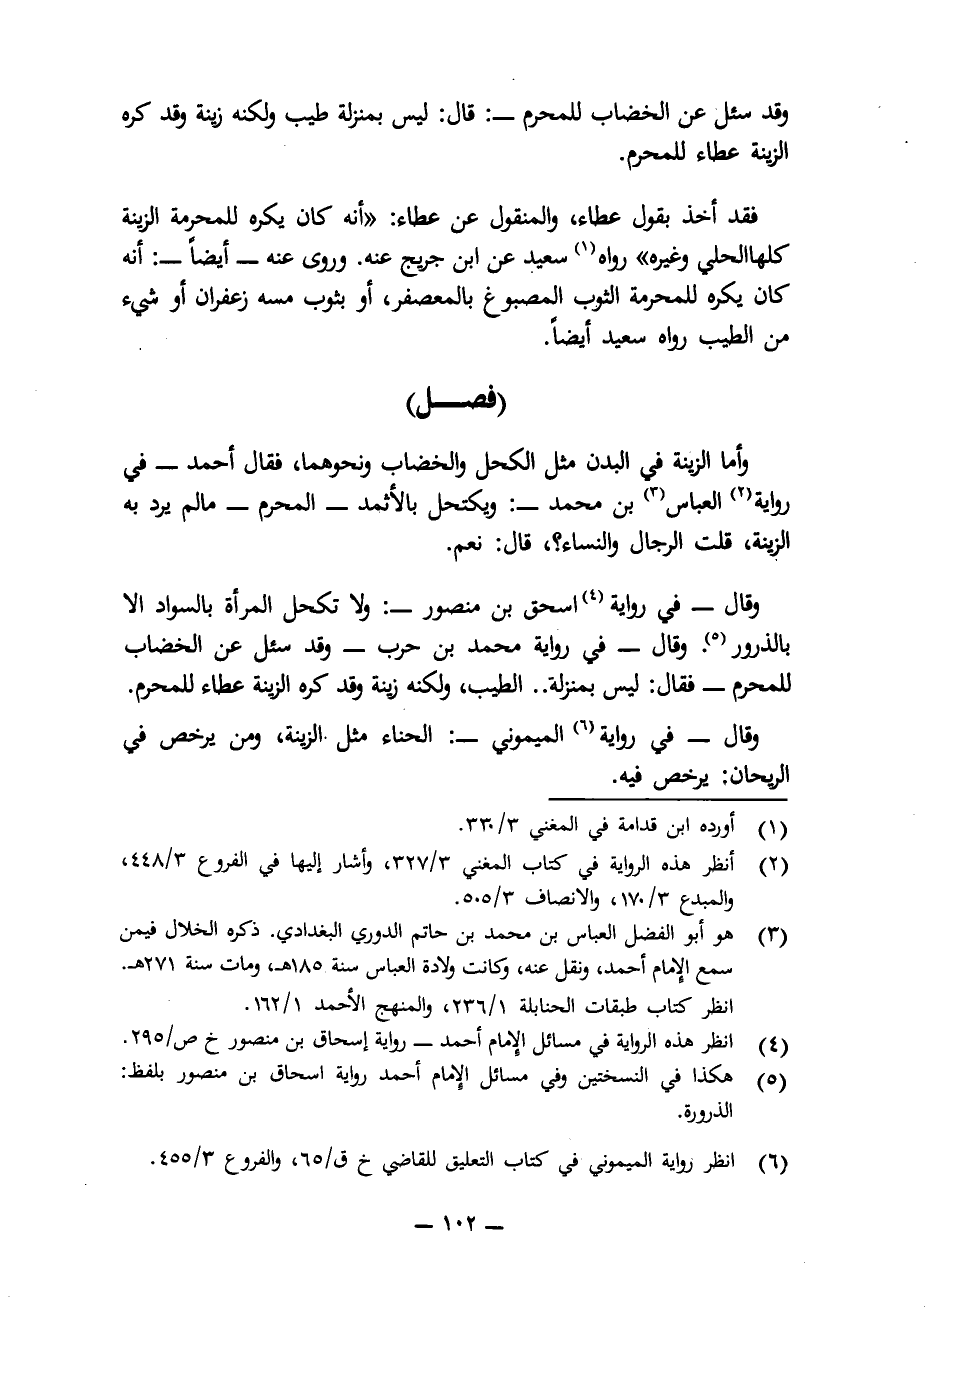 وقد سئل عن الخضاب للمحرم ــ: قال: ليس بمنزلة طيب ولكنه زينة وقد كره
الزينة عطاء للمحرم.
فقد أخذ بقول عطاء، والمنقول عن عطاء: «أنه كان يكره للمحرمة الزينة
كلهاالحلي وغيره» رواه(١) سعيد عن ابن جريج عنه. وروى عنه ــ أيضاً ــ: أنه
كان يكره للمحرمة الثوب المصبوغ بالمعصفر، أو بثوب مسه زعفران أو شيء
من الطيب رواه سعيد أيضاً.
(فصــــل)
وأما الزينة في البدن مثل الكحل والخضاب ونحوهما، فقال أحمد ــ في
رواية(٢) العباس(٣) بن محمد ــ: ويكتحل بالأثمد ــ المحرم ــ مالم يرد به
الزينة، قلت الرجال والنساء؟، قال: نعم.
وقال ــ في رواية(٤) اسحق بن منصور ــ: ولا تكحل المرأة بالسواد الا
بالذرور(٥). وقال ــ في رواية محمد بن حرب ــ وقد سئل عن الخضاب
للمحرم ــ فقال: ليس بمنزلة.. الطيب، ولكنه زينة وقد كره الزينة عطاء للمحرم.
وقال ــ في رواية(٦) الميموني ــ: الحناء مثل الزينة، ومن يرخص في
الريحان: يرخص فيه.
(١) أورده ابن قدامة في المغني ٣٣٠/٣.
(٢) أنظر هذه الرواية في كتاب المغني ٣٢٧/٣، وأشار إليها في الفروع ٤٤٨/٣،
والمبدع ١٧٠/٣، والانصاف ٥٠٥/٣.
(٣) هو أبو الفضل العباس بن محمد بن حاتم الدوري البغدادي. ذكره الخلال فيمن
سمع الإمام أحمد، ونقل عنه، وكانت ولادة العباس سنة ١٨٥هـ، ومات سنة ٢٧١هـ.
انظر كتاب طبقات الحنابلة ٢٣٦/١، والمنهج الأحمد ١٦٢/١.
(٤) انظر هذه الرواية في مسائل الإمام أحمد ــ رواية إسحاق بن منصور خ ص/٢٩٥.
(٥) هكذا في النسختين وفي مسائل الإمام أحمد رواية اسحاق بن منصور بلفظ:
الذرورة.
(٦) انظر رواية الميموني في كتاب التعليق للقاضي خ ق/٦٥، والفروع ٤٥٥/٣.
ــ ١٠٢ ــ